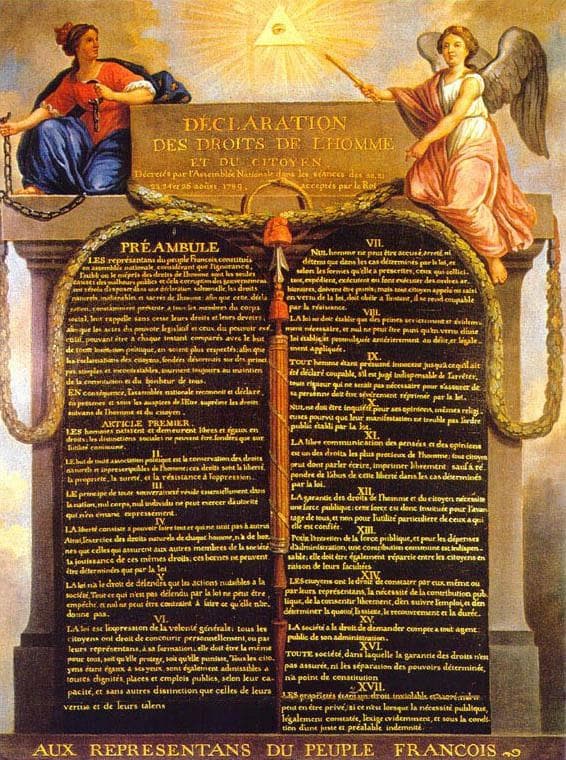 DÉCLARATION
DES DROITS DE L'HOMME
ET DU CITOYEN,
Décrétés par l'Assemblée Nationale dans les séances des 20, 21
23, 24 et 26 août 1789, acceptés par le Roi
PRÉAMBULE
LES représentans du peuple François, constitués
en assemblée nationale, considérant que l'ignorance,
l'oubli ou le mépris des droits de l'homme sont les seules
causes des malheurs publics et de la corruption des gouvernemens
ont résolu d'exposer dans une déclaration solemnelle, les droits
naturels, inaliénables et sacrés de l'homme; afin que cette décla
ration, constamment présente a tous les membres du corps
social, leur rappelle sans cesse leurs droits et leurs devoirs;
afin que les actes du pouvoir législatif et ceux du pouvoir exé
cutif, pouvant être a chaque instant comparés avec le but
de toute institution politique, en soient plus respectés; afin que
les reclamations des citoyens, fondées désormais sur des princi
pes simples et incontestables, tournent toujours au maintien
de la constitution et du bonheur de tous.
EN conséquence, l'assemblée nationale reconnoit et déclare,
en presence et sous les auspices de l'Etre suprême les droits
suivans de l'homme et du citoyen.
ARTICLE PREMIER.
LES hommes naissent et demeurent libres et égaux en
droits; les distinctions sociales ne peuvent être fondées que sur
l'utilité commune.
II.
LE but de toute association politique est la conservation des droits
naturels et imprescriptibles de l'homme; ces droits sont la liberté,
la propriété, la sureté, et la résistance à l'oppression.
III.
LE principe de toute souveraineté réside essentiellement dans
la nation, nul corps, nul individu ne peut exercer d'autorité
qui n'en émane expressément.
IV.
LA liberté consiste a pouvoir faire tout ce qui ne nuit pas à autrui
Ainsi, l'exercice des droits naturels de chaque homme, n'a de bor
nes que celles qui assurent aux autres membres de la société
la jouissance de ces mêmes droits; ces bornes ne peuvent
être déterminées que par la loi
V.
LA loi n'a le droit de défendre que les actions nuisibles à la
société. Tout ce qui n'est pas défendu par la loi ne peut être
empêché, et nul ne peut être contraint à faire ce qu'elle n'or-
donne pas.
VI.
LA loi est l'expression de la volonté générale; tous les
citoyens ont droit de concourir personnellement, ou par
leurs représentans, à sa formation; elle doit être la même
pour tous, soit qu'elle protege, soit qu'elle punisse. Tous les cito
yens étant égaux à ses yeux, sont également admissibles à
toutes dignités, places et emplois publics, selon leur ca-
pacité, et sans autres distinction que celles de leurs
vertus et de leurs talens
VII.
NUL homme ne peut être accusé, arreté, ni
détenu que dans les cas déterminés par la loi, et
selon les formes qu'elle a prescrites, ceux qui sollici-
tent, expédient, exécutent ou font exécuter des ordres ar-
bitraires, doivent être punis; mais tout citoyen appelé ou saisi
en vertu de la loi, doit obéir a l'instant, il se rend coupable
par la résistance.
VIII.
LA loi ne doit établir que des peines strictement et évidem-
ment nécessaires, et nul ne peut être puni qu'en vertu d'une
loi établie et promulguée antérieurement au délit, et légale-
ment appliquée.
IX
TOUT homme étant présumé innocent jusqu'à ce qu'il ait
été déclaré coupable, s'il est jugé indispensable de l'arrêter,
toute rigueur qui ne serait pas nécessaire pour s'assurer de
sa personne doit être sévèrement réprimée par la loi.
X.
NUL ne doit être inquiété pour ses opinions, mêmes religi-
euses pourvu que leur manifestation ne trouble pas l'ordre
public établi par la loi.
XI.
LA libre communication des pensées et des opinions
est un des droits les plus precieux de l'homme; tout citoyen
peut donc parler écrire, imprimer librement, sauf à ré-
pondre de l'abus de cette liberté dans les cas déterminés
par la loi.
XII.
LA garantie des droits de l'homme et du citoyen nécessite
une force publique; cette force est donc instituée pour l'avan-
tage de tous, et non pour l'utilité particuliere de ceux a qui
elle est confiée.
XIII.
Pour l'entretien de la force publique, et pour les dépenses
d'administration, une contribution commune est indispen-
sable; elle doit être également répartie entre les citoyens en
raison de leurs facultées
XIV.
LES citoyens ont le droit de constater par eux même ou
par leurs représentans, la nécessité de la contribution pub-
lique, de la consentir librement, d'en suivre l'emploi, et d'en
déterminer la quotité, l'assiette, le recouvrement et la durée.
XV.
LA société a le droit de demander compte a tout agent
public de son administration.
XVI.
TOUTE société, dans laquelle la garantie des droits n'est
pas assurée, ni la séparation des pouvoirs déterminée,
n'a point de constitution
XVII.
LES propriétés étant un droit inviolable et sacré, nul ne
peut en être privé, si ce n'est lorsque la nécessité publique,
légalement constatée, l'exige evidemment, et sous la condi-
tion d'une juste et préalable indemnité.
AUX REPRESENTANS DU PEUPLE FRANCOIS